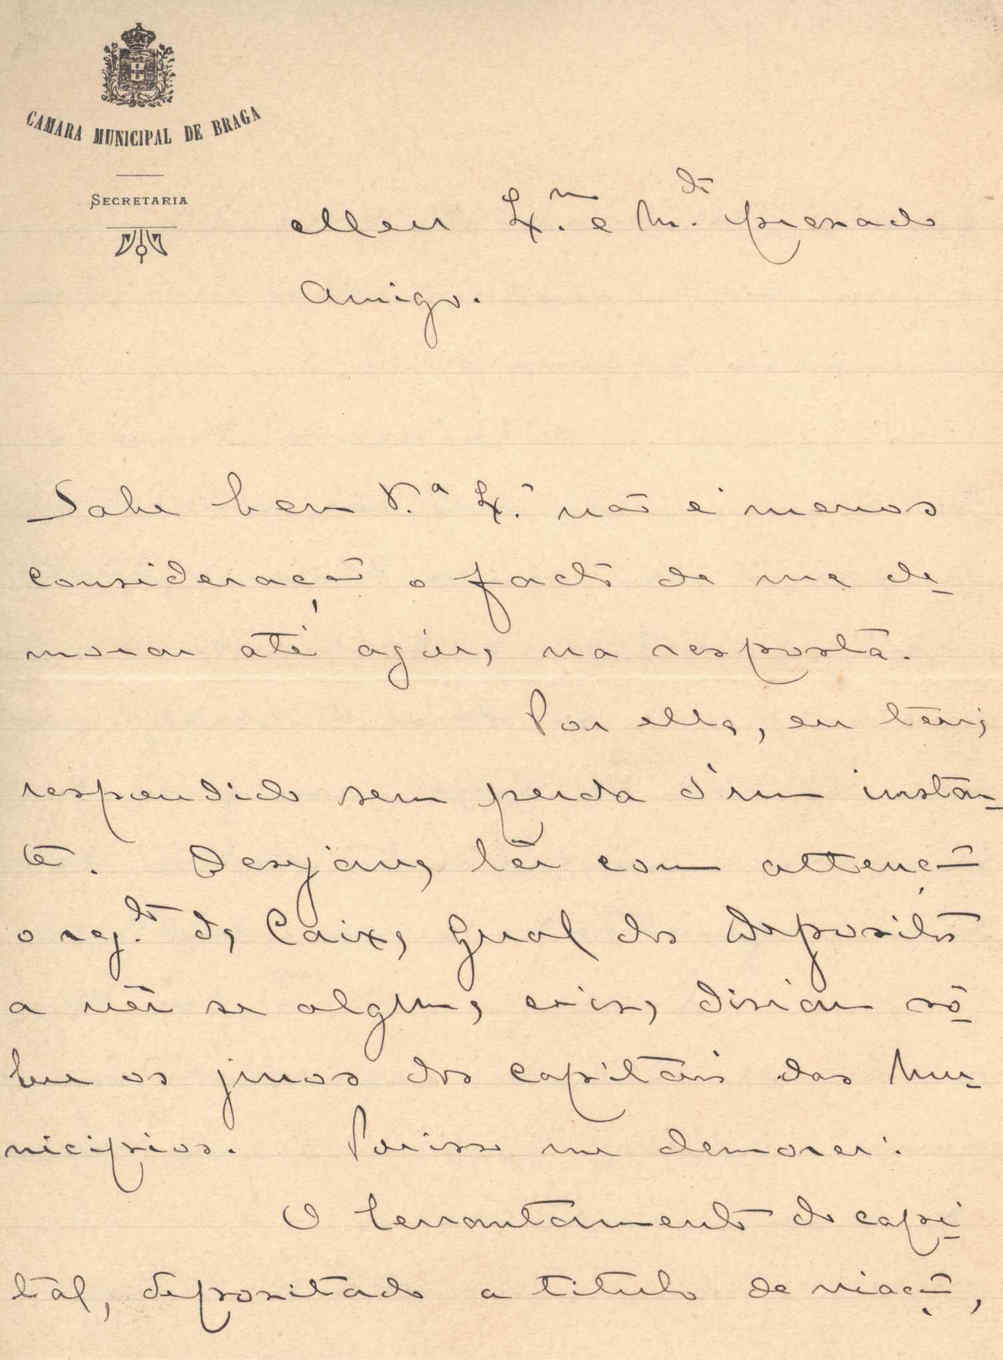 CAMARA MUNICIPAL DE BRAGA
SECRETARIA
Meu Ex.mo e M.to presado
Amigo.
Sabe bem V.a Ex.a não é menos
consideração o facto de me de-
morar até agora, na resposta.
Por ella, eu teria
respondido sem perda d'um instan-
te. Desejava, lêr com attenção
o reg.to da Caixa Geral dos Depositos
a vêr se alguma coisa, disiam sô-
bre os juros dos capitais dos Mu-
nicipios. Porisso me demorei.
O levantamento do capi-
tal, depositado a titulo de viação,